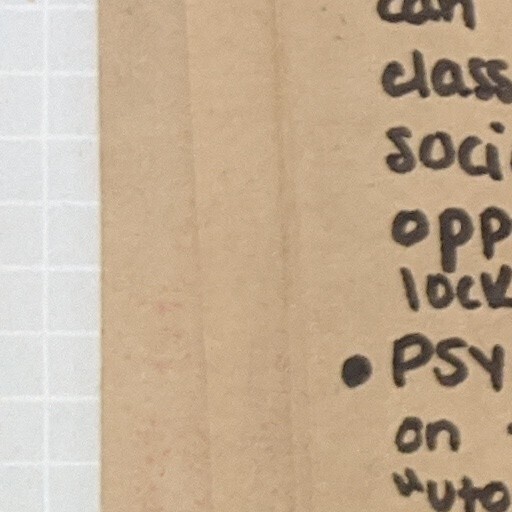 can
class
soci
opp
lock
• PSY
on
"uto